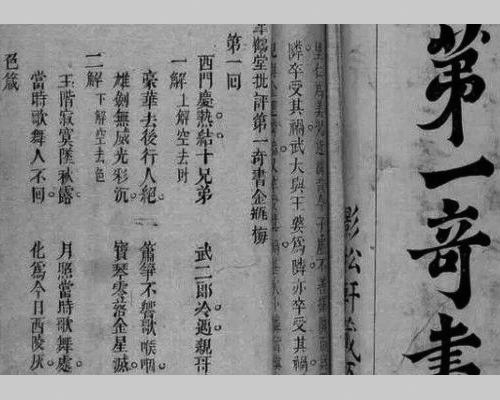 第一奇書
影松軒藏板
隣卒受其禍武大與王婆為隣亦卒受其禍
皐鶴堂批評第一奇書金瓶梅
第一回
西門慶熱結十兄弟 武二郎冷遇親哥
一解 上解空去财
豪華去後行人絕 簫箏不響歌喉咽
雄劍無威光彩沉 寶琴零落金星滅
二解 下解空去色
玉階寂寞墜秋露 月照當時歌舞處
當時歌舞人不回 化為今日西陵灰
色箴